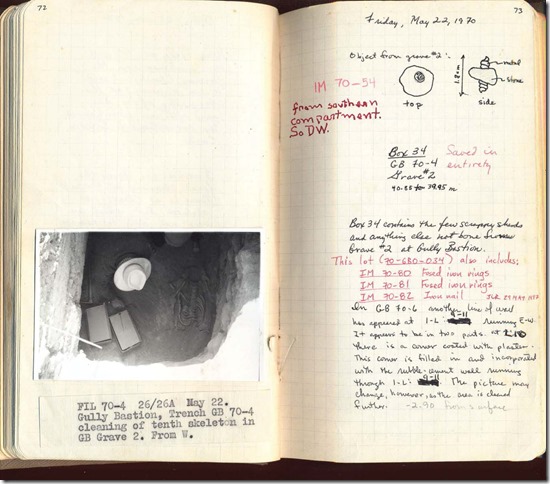 72
FIL 70-4 26/26A May 22.
Gully Bastion, Trench GB 70-4
cleaning of tenth skeleton in
GB Grave 2. From W.
73
Friday, May 22, 1970
Object from grave #2:
IM 70-54
from southern
compartment.
So DW.
metal
stone
top
side
Box 34
GB 70-4
Grave #2
Saved in
entirety
Box 34 contains the few scrappy sherds
and anything else not bone
Grave #2 at Gully Bastion.
This lot (70-GBO-034) also includes:
IM 70-80 Fused iron rings
IM 70-81 Fused iron rings
IM 70-82 Iron nail
In GB 70-6 another line of wall
has appeared at 1-L: 9-11 running E-W.
It appears to be in two parts. at
there is a corner coated with plaster.
This corner is filled in and incorporated
with the rubble-cement wall running
through 1-L: 9-11. The picture may
change, however, as the area is cleared
further. -2.90 from surface